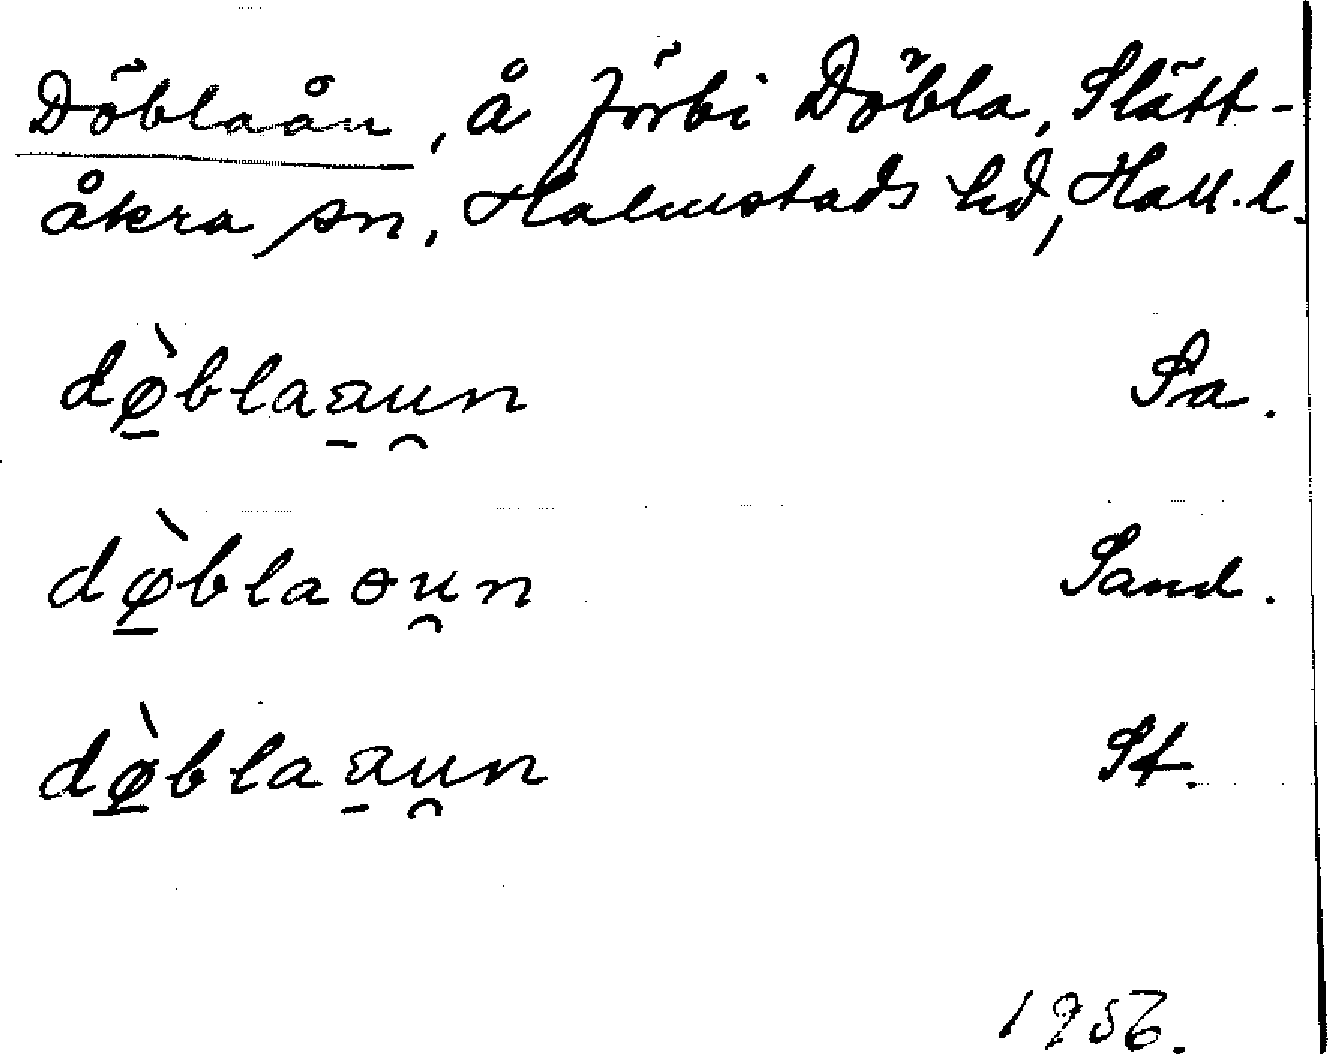 Döblaån, å förbi Döbla, Slätt-
åkra sn, Halmstads hd, Hall. l.
dø̲̀blaa̲u̯n Sa.
dø̲̀blaɵu̯n Sand.
dø̲̀blaa̲u̯n St.
1956.